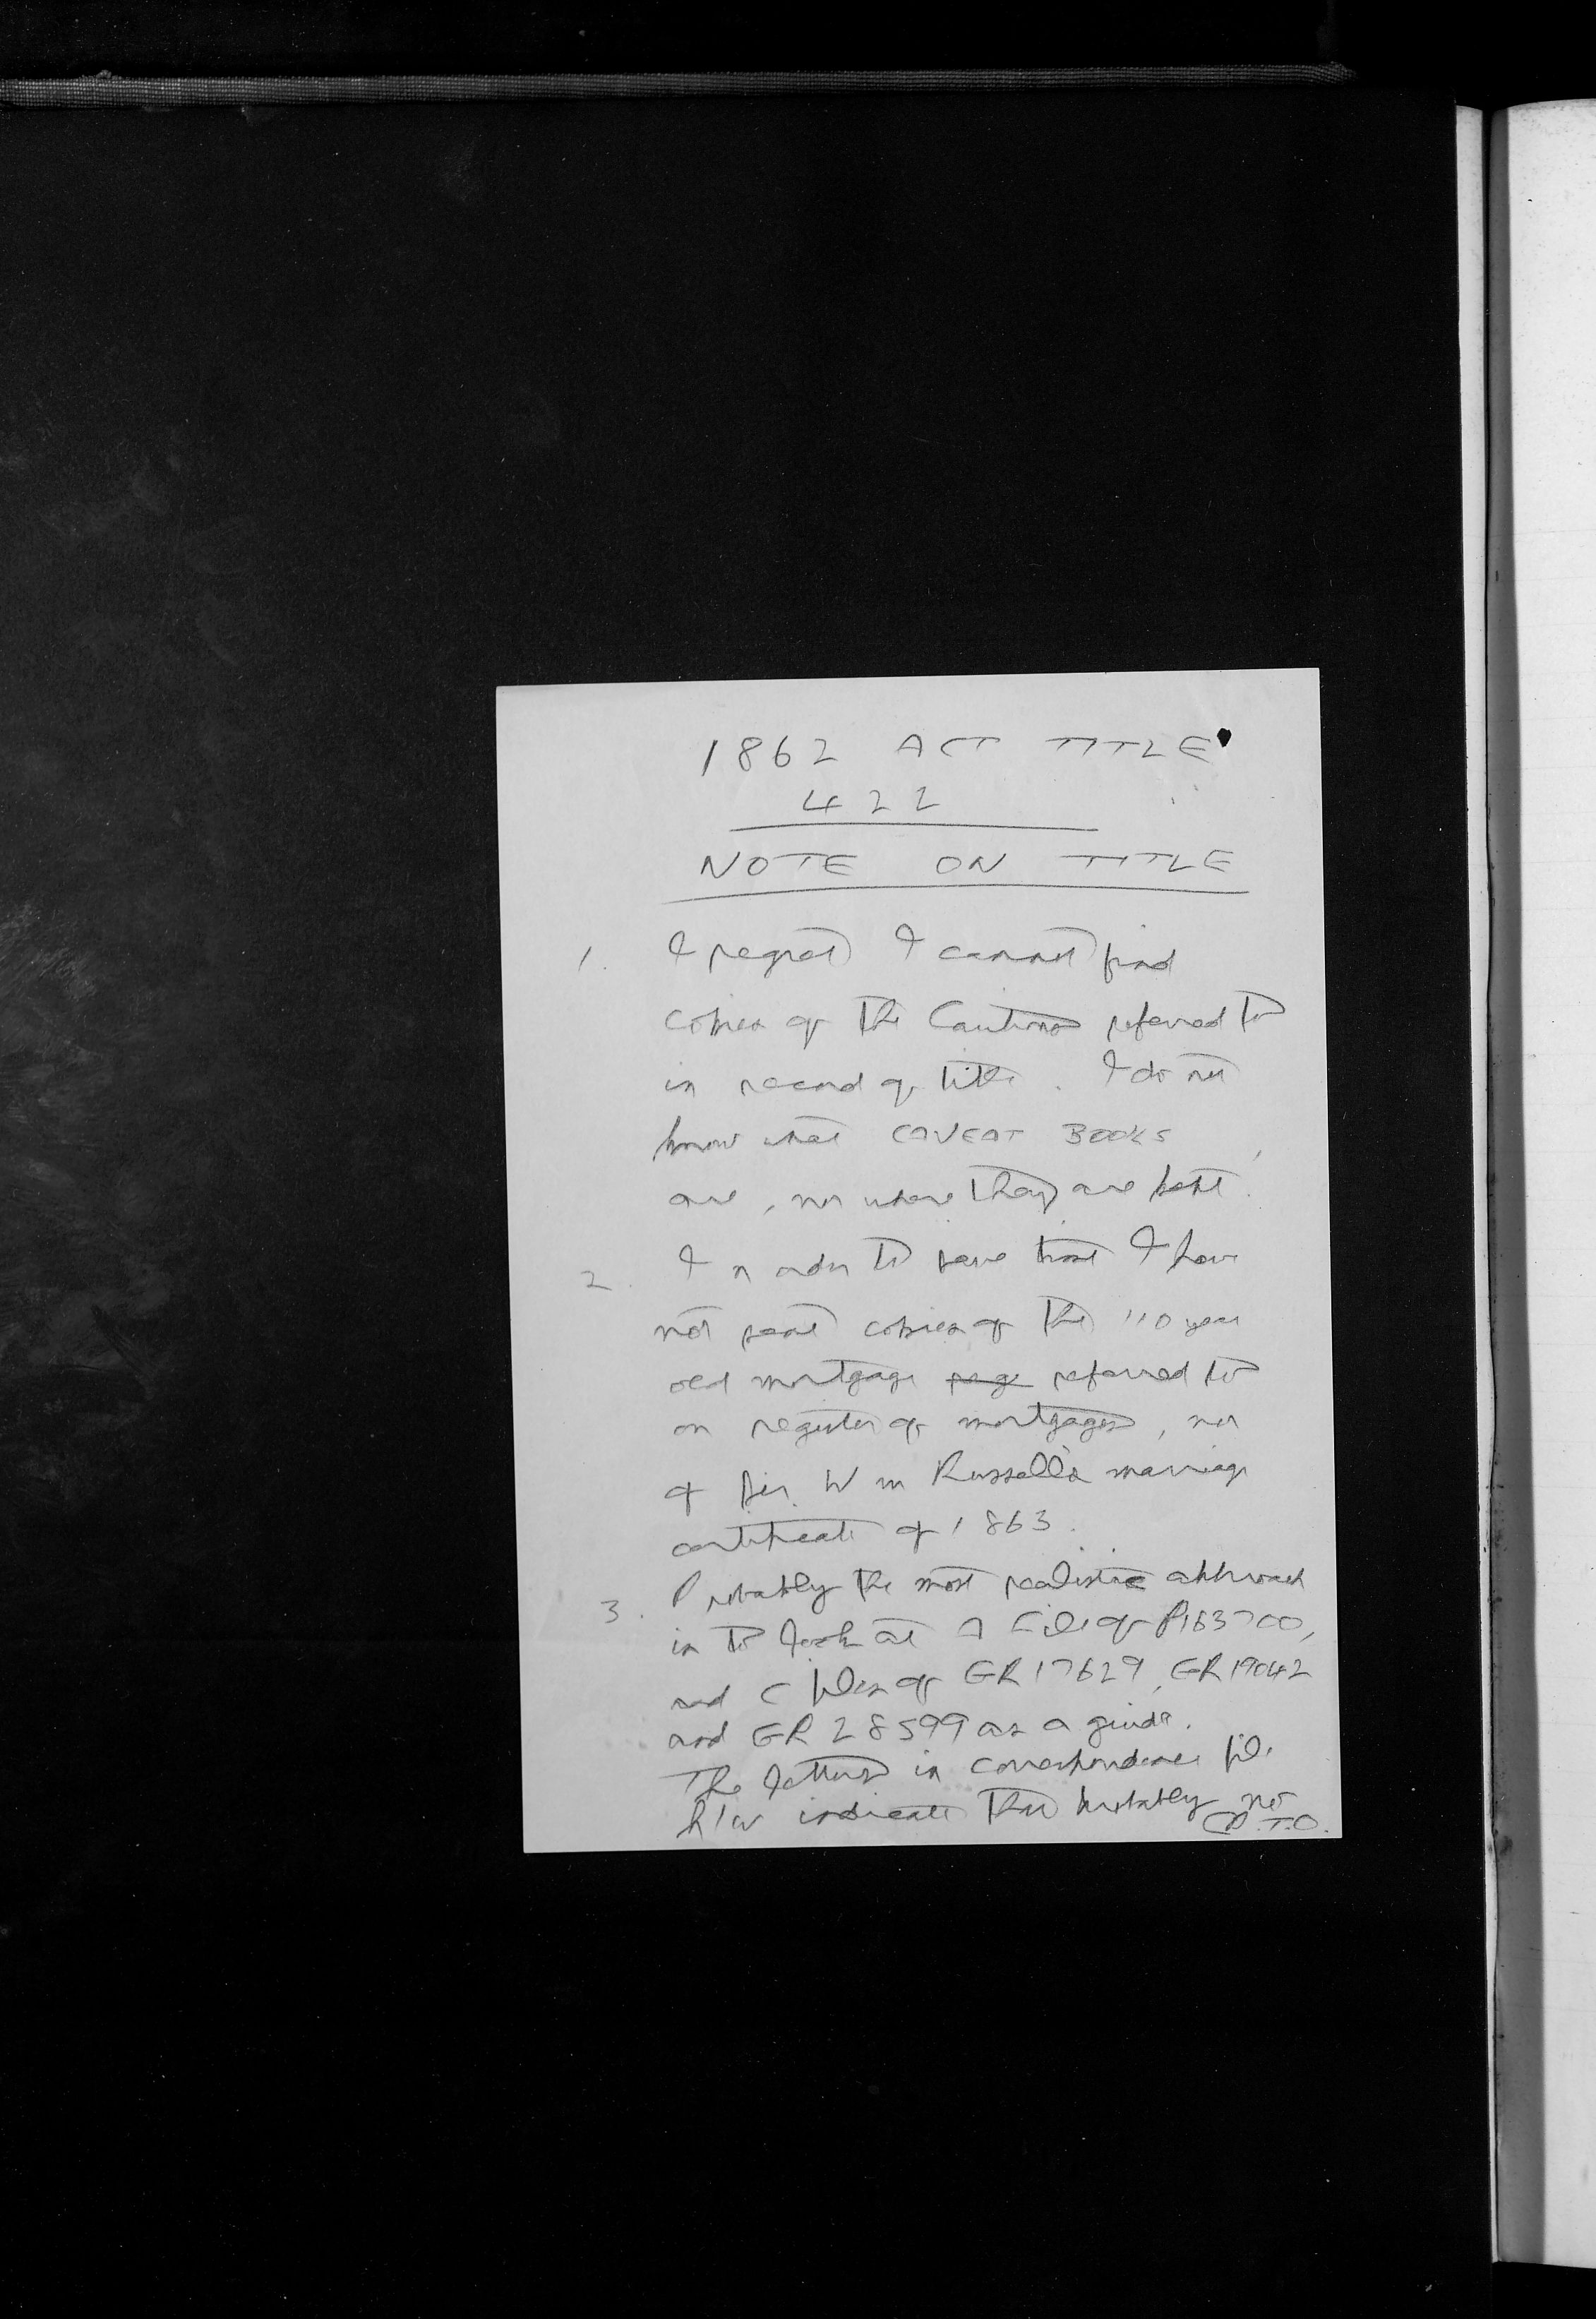 1862 ACT TITLE
422
NOTE ON TITLE
1. I regret I cannot find
copies of the Cautions referred to
in record of title. I do not
know what CAVEAT BOOKS
are, nor where they are kept.
2. In order to save time I have
not sent copies of the 110 year
old mortgage referred to
on register of mortgages, nor
of Sir Wm Russell's marriage
certificate of 1863.
3. Probably the most realistic approach
is to look at A File of P163700,
and C files of GR 17629, GR 19042
and GR 28599 as a guide.
The letters in correspondence file
h/w indicate that probably no
P.T.O.